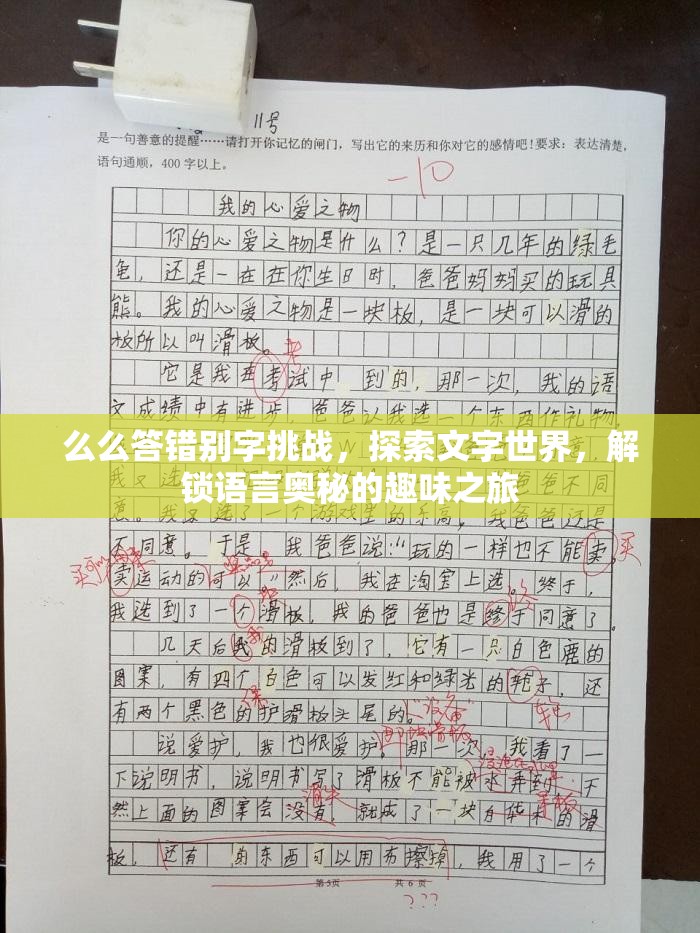 11号
是一句善意的提醒……请打开你记忆的闸门，写出它的来历和你对它的感情吧！要求：表达清楚，
语句通顺，400字以上。
-10
我的心爱之物
你的心爱之物是什么？是一只几年的绿毛
龟，还是一在在你生日时，爸爸妈妈买的玩具
熊。我的心爱之物是一块板，是一块可以滑的
板所以叫滑板。
它是我再考试中，到的，那一次，我的语
文成绩中有进步，爸爸认我选一个东西作礼物，
么么答错别字挑战，探索文字世界，解
锁语言奥秘的趣味之旅
意。我又选了一个游戏里的乐高，我爸爸还是
不同意。于是，我爸爸说："玩的一样也不能卖，
买
卖运动的可以"然后，我在淘宝上选。终于，
我选到了一个滑板，我的爸爸也是终于同意了。
几天后我的滑板到了，它有一只白色鹿的
图案，有四个白色可以发红和绿光的轮子，还
有两个黑色的护滑板头尾的。"设备"
说爱护，我也很爱护。那一次，我看了一
下说明书，说明书写了滑板不能被水弄到，不
然上面的图案会没有，就成了一块白华木的滑
消失
板，还有 的东西可以用布擦掉，我用了一个
第5页 共6页
???